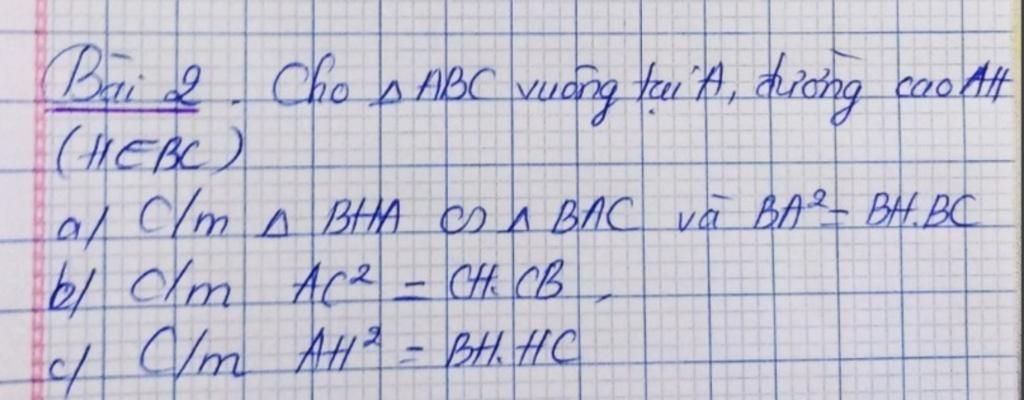 Bài 2. Cho △ ABC vuông tại A, đường cao AH
(H∈BC)
a/ C/m △ BHA ∽ △ BAC và BA² = BH.BC
b/ C/m AC² = CH.CB.
c/ C/m AH² = BH.HC